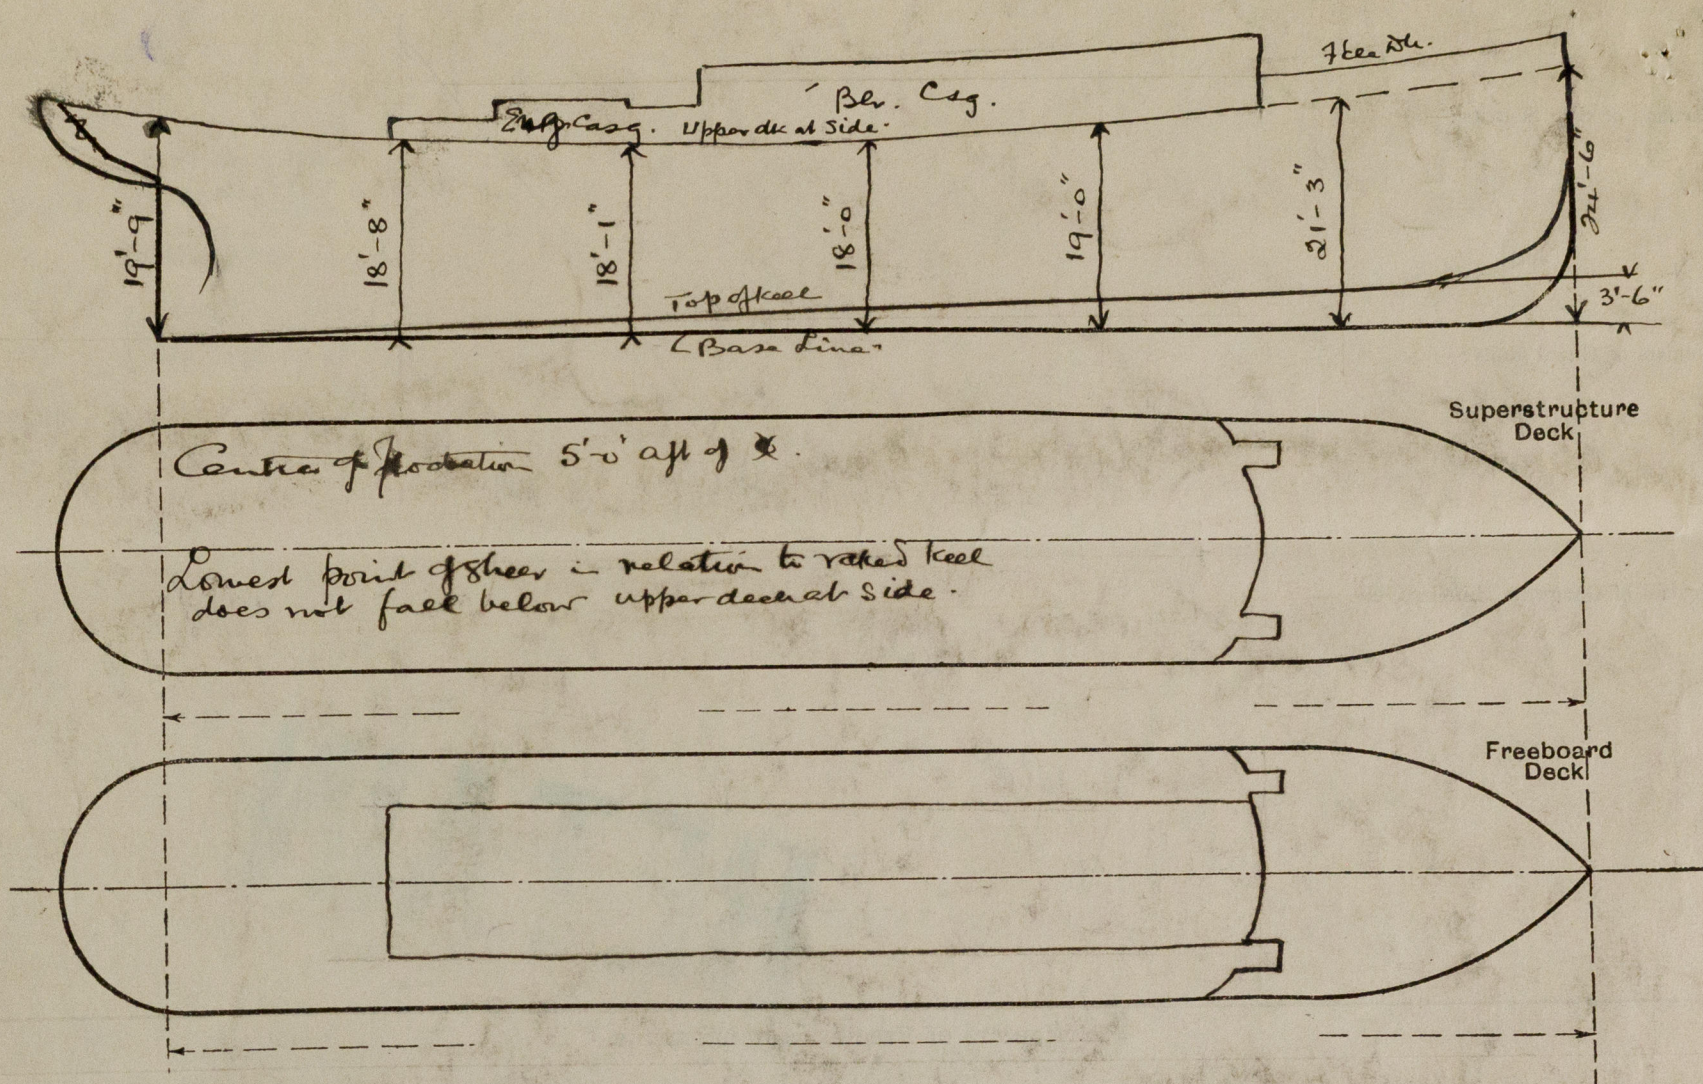 F'cle Dk.
Blr. Csg.
Eng. Casg. Upper dk at Side.
19'-9"
18'-8"
18'-1"
18'-0"
19'-0"
21'-3"
24'-6"
Top of keel
3'-6"
Base Line
Superstructure
Deck
Centre of flotation 5'-0" aft of
Lowest point of sheer in relation to raked keel
does not fall below upper deck at side.
Freeboard
Deck